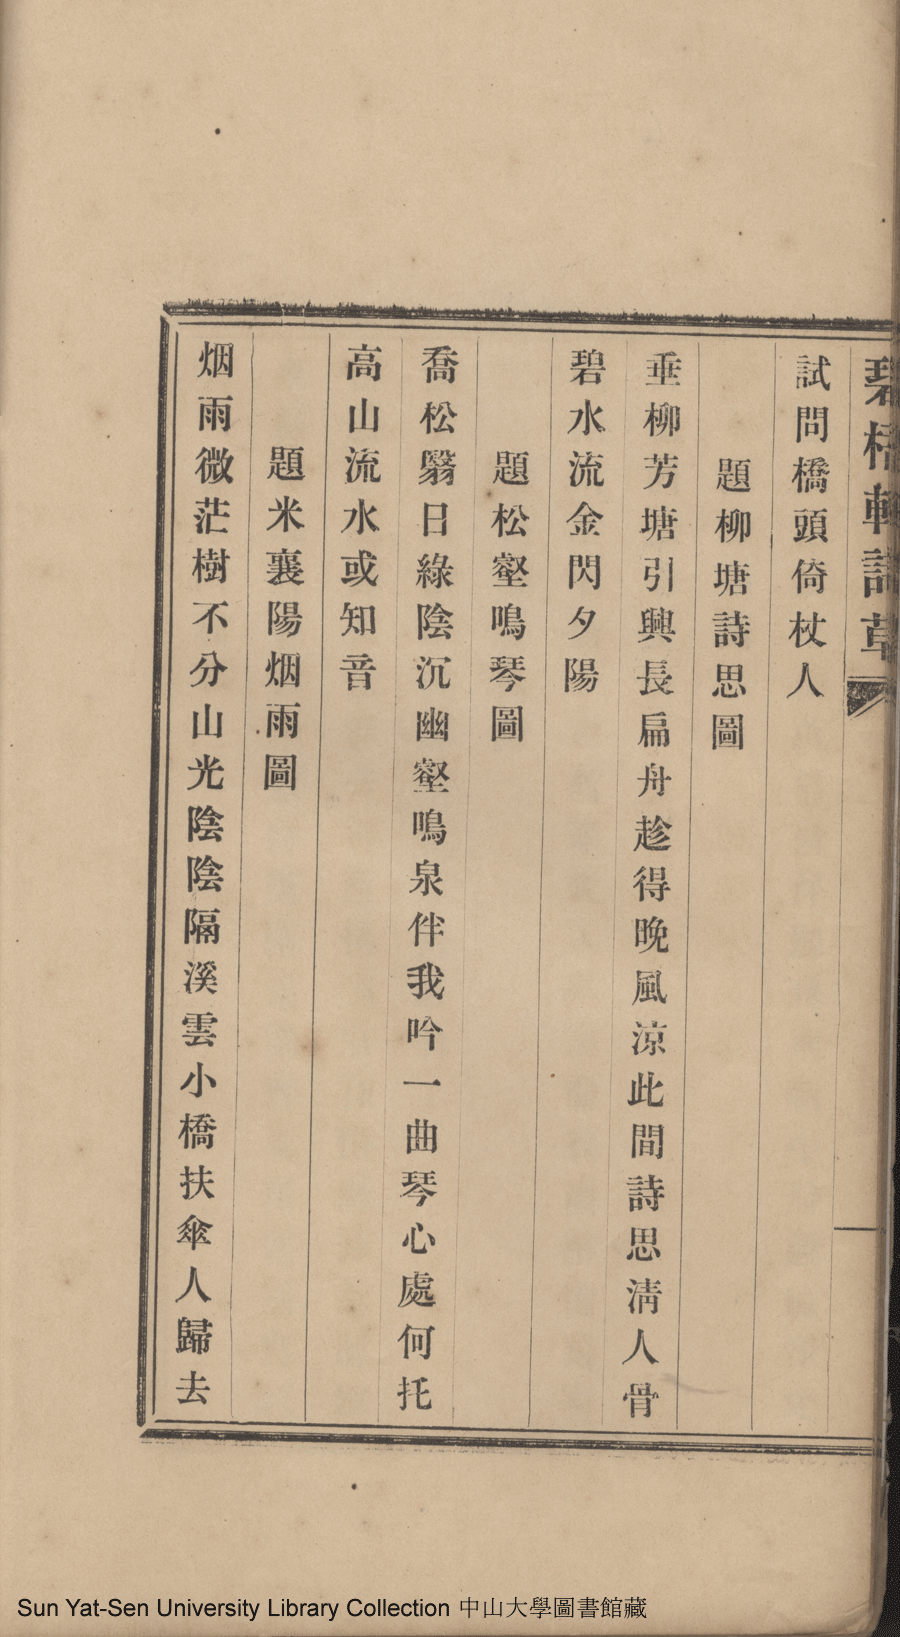 碧梧軒詩草
試問橋頭倚杖人
題柳塘詩思圖
垂柳芳塘引興長扁舟趁得晚風涼此間詩思清人骨
碧水流金閃夕陽
題松壑鳴琴圖
喬松翳日綠陰沉幽壑鳴泉伴我吟一曲琴心處何托
高山流水或知音
題米襄陽烟雨圖
烟雨微茫樹不分山光陰陰隔溪雲小橋扶傘人歸去
Sun Yat-Sen University Library Collection 中山大學圖書館藏